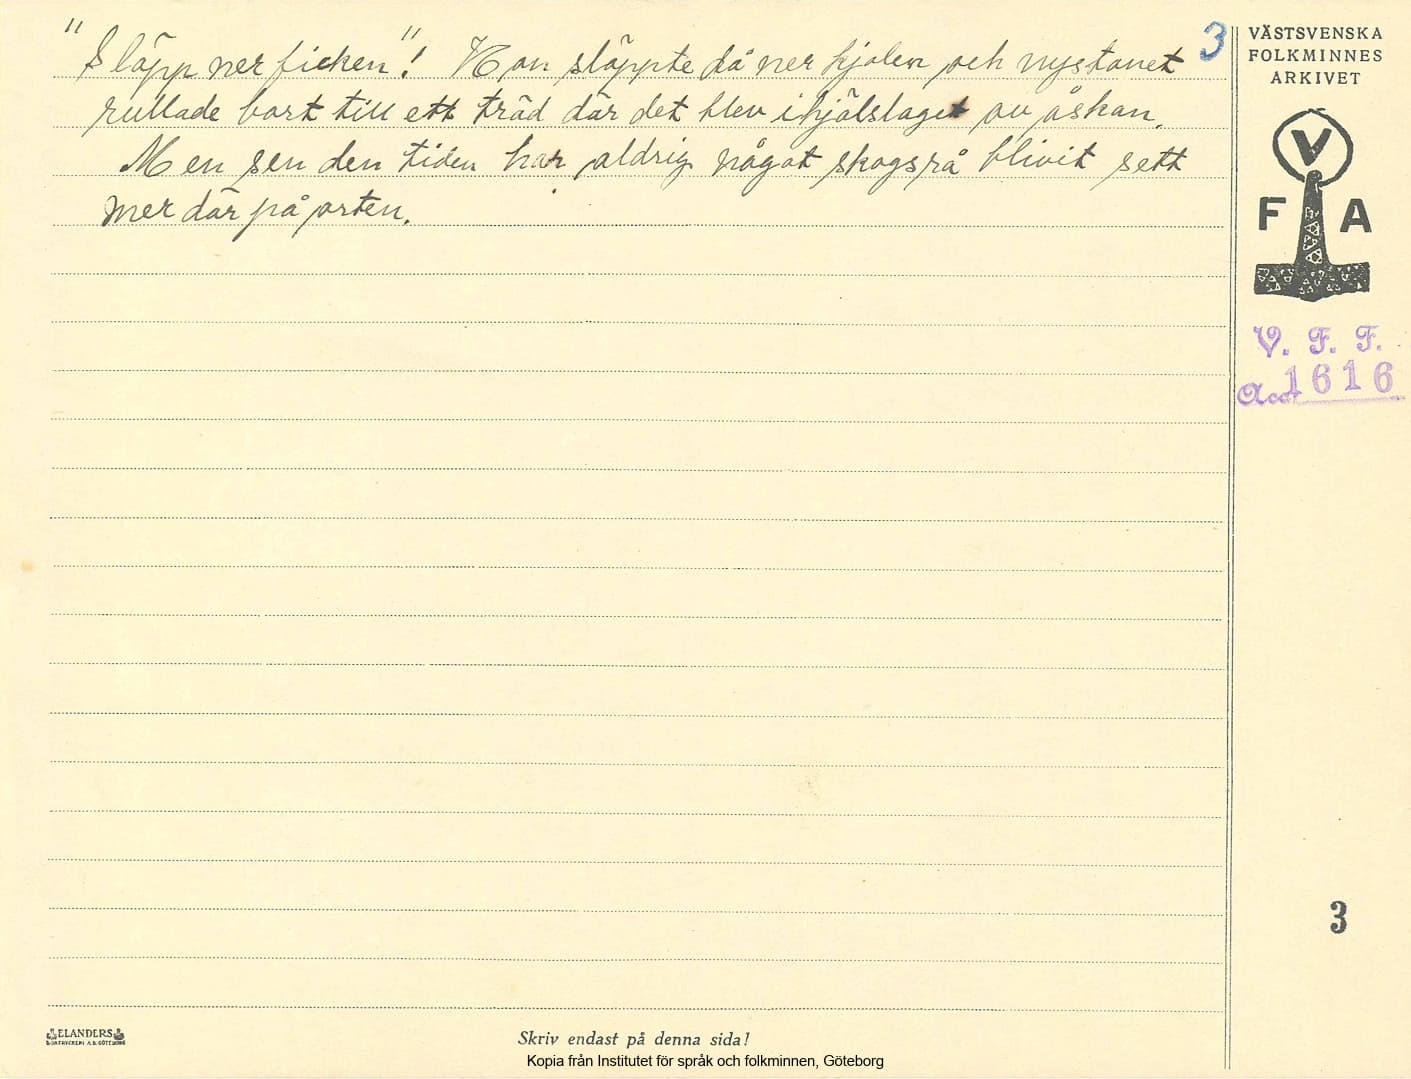 "Släpp ner ficken"! Hon släppte då ner kjolen och nystanet
rullade bort till ett träd där det blev ihjälslaget av åskan.
Men sen den tiden har aldrig något skogsrå blivit sett
mer där på orten.
3
VÄSTSVENSKA
FOLKMINNES
ARKIVET
V
F A
V. F. F.
Acc 1616
3
ELANDERS
BOKTRYCKERI A.B. GÖTEBORG
Skriv endast på denna sida!
Kopia från Institutet för språk och folkminnen, Göteborg